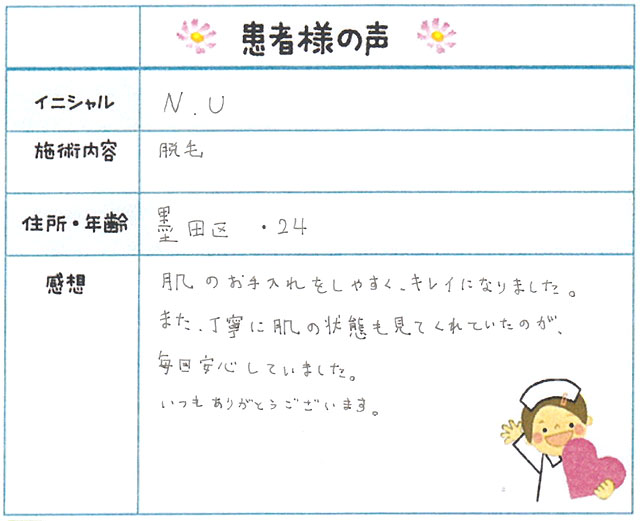 患者様の声
イニシャル N.U
施術内容 脱毛
住所・年齢 墨田区 ・24
感想
肌のお手入れをしやすく、キレイになりました。
また、丁寧に肌の状態も見てくれていたのが、
毎回安心していました。
いつもありがとうございます。